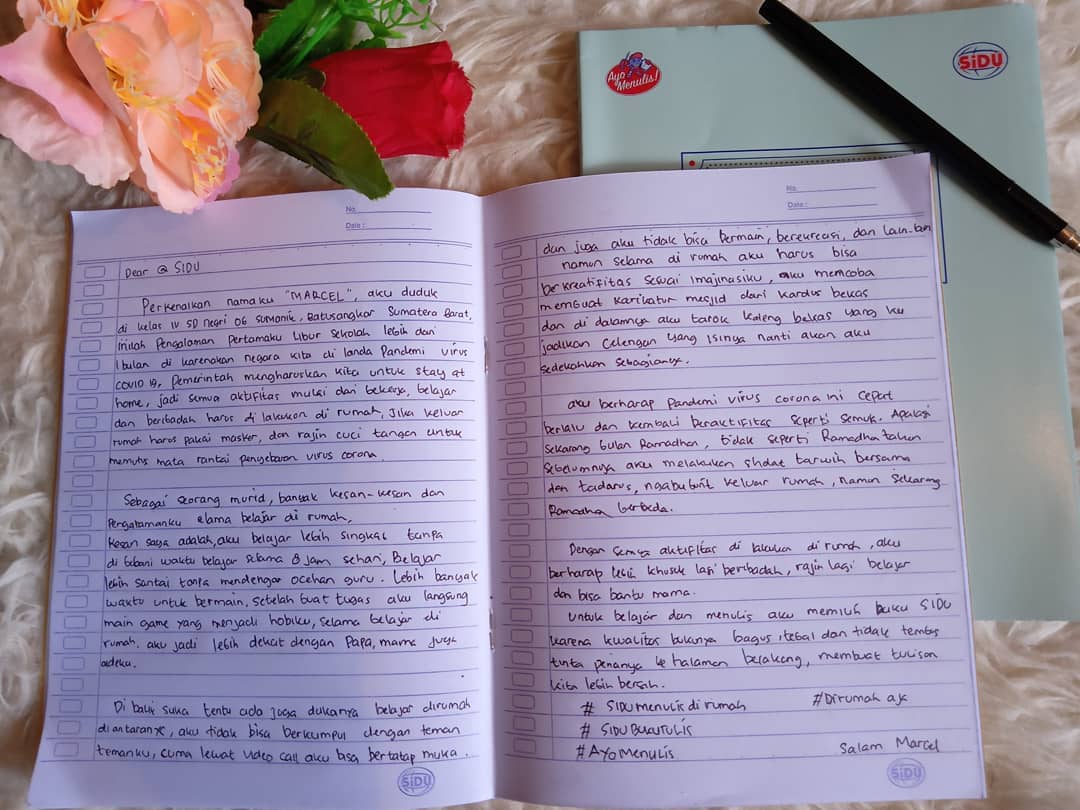 Ayo
Menulis!
SiDU
No.
Date :
Dear @ SIDU
Perkenalkan namaku "MARCEL", aku duduk
di kelas IV SD negri 06 Sumanik, Batusangkar Sumatera Barat,
inilah Pengalaman Pertamaku Libur Sekolah lebih dari
1 bulan di karenakan negara kita di landa Pandemi virus
COVID 19, Pemerintah mengharuskan kita untuk stay at
home, jadi semua aktifitas mulai dari bekerja, belajar
dan beribadah harus di lakukan di rumah, Jika keluar
rumah harus pakai masker, dan rajin cuci tangan untuk
memutus mata rantai penyebaran virus corona.
Sebagai seorang murid, banyak kesan-kesan dan
Pengalamanku elama belajar di rumah,
Kesan saya adalah, aku belajar lebih singkat tanpa
di bebani waktu belajar selama 8 jam sehari, Belajar
lebih santai tanpa mendengar ocehan guru. Lebih banyak
waktu untuk bermain, setelah buat tugas aku langsung
main game yang menjadi hobiku, selama belajar di
rumah. aku jadi lebih dekat dengan Papa, mama juga
adeku.
Di balik suka tentu ada juga dukanya belajar dirumah
diantaranya, aku tidak bisa berkumpul dengan teman
temanku, cuma lewat video call aku bisa bertatap muka.
SiDU
No.
Date :
dan juga aku tidak bisa bermain, berekreasi, dan lain-lain
namun selama di rumah aku harus bisa
berkreatifitas sesuai imajinasiku, aku mencoba
membuat karikatur mesjid dari kardus bekas
dan di dalamnya aku tarok kaleng bekas yang ku
jadikan celengan yang isinya nanti akan aku
sedekahkan sebagianya.
aku berharap Pandemi virus corona ini cepat
berlalu dan kembali beraktifitas seperti semula. Apalagi
Sekarang bulan Ramadhan, tidak seperti Ramadha tahun
sebelumnya aku melakukan sholat tarwih bersama
dan tadarus, ngabuburit keluar rumah, namun sekarang
Ramadhan berbeda.
Dengan semua aktifitas di lakukan di rumah, aku
berharap lebih khusuk lagi beribadah, rajin lagi belajar
dan bisa bantu mama.
Untuk belajar dan menulis aku memilih buku SIDU
karena kualitas bukunya bagus, tebal dan tidak tembus
tinta penanya ke halaman belakang, membuat tulisan
kita lebih bersih.
# SIDU menulis di rumah #Dirumah aja
# SIDU BUKUTULIS
#AYOMENULIS
Salam Marcel
SiDU